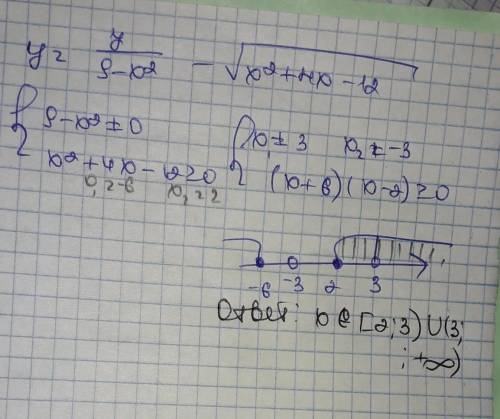 y = y/(9-x²) - √(x²+4x-12)
{ 9-x² ≠ 0
x²+4x-12≥0
x₁=-6 x₂=2
{ x₁ ≠ 3 x₂ ≠ -3
(x+6)(x-2)≥0
-6 -3 2 3
Ответ: x ∈ [2;3) ∪ (3;
; +∞)